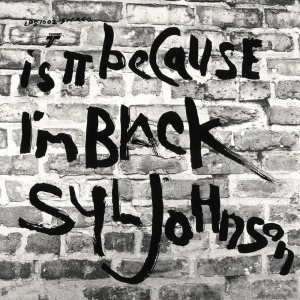 LPS1002-stereo
is iT beCAUSE
I'm BlACK
SYL JoHnson